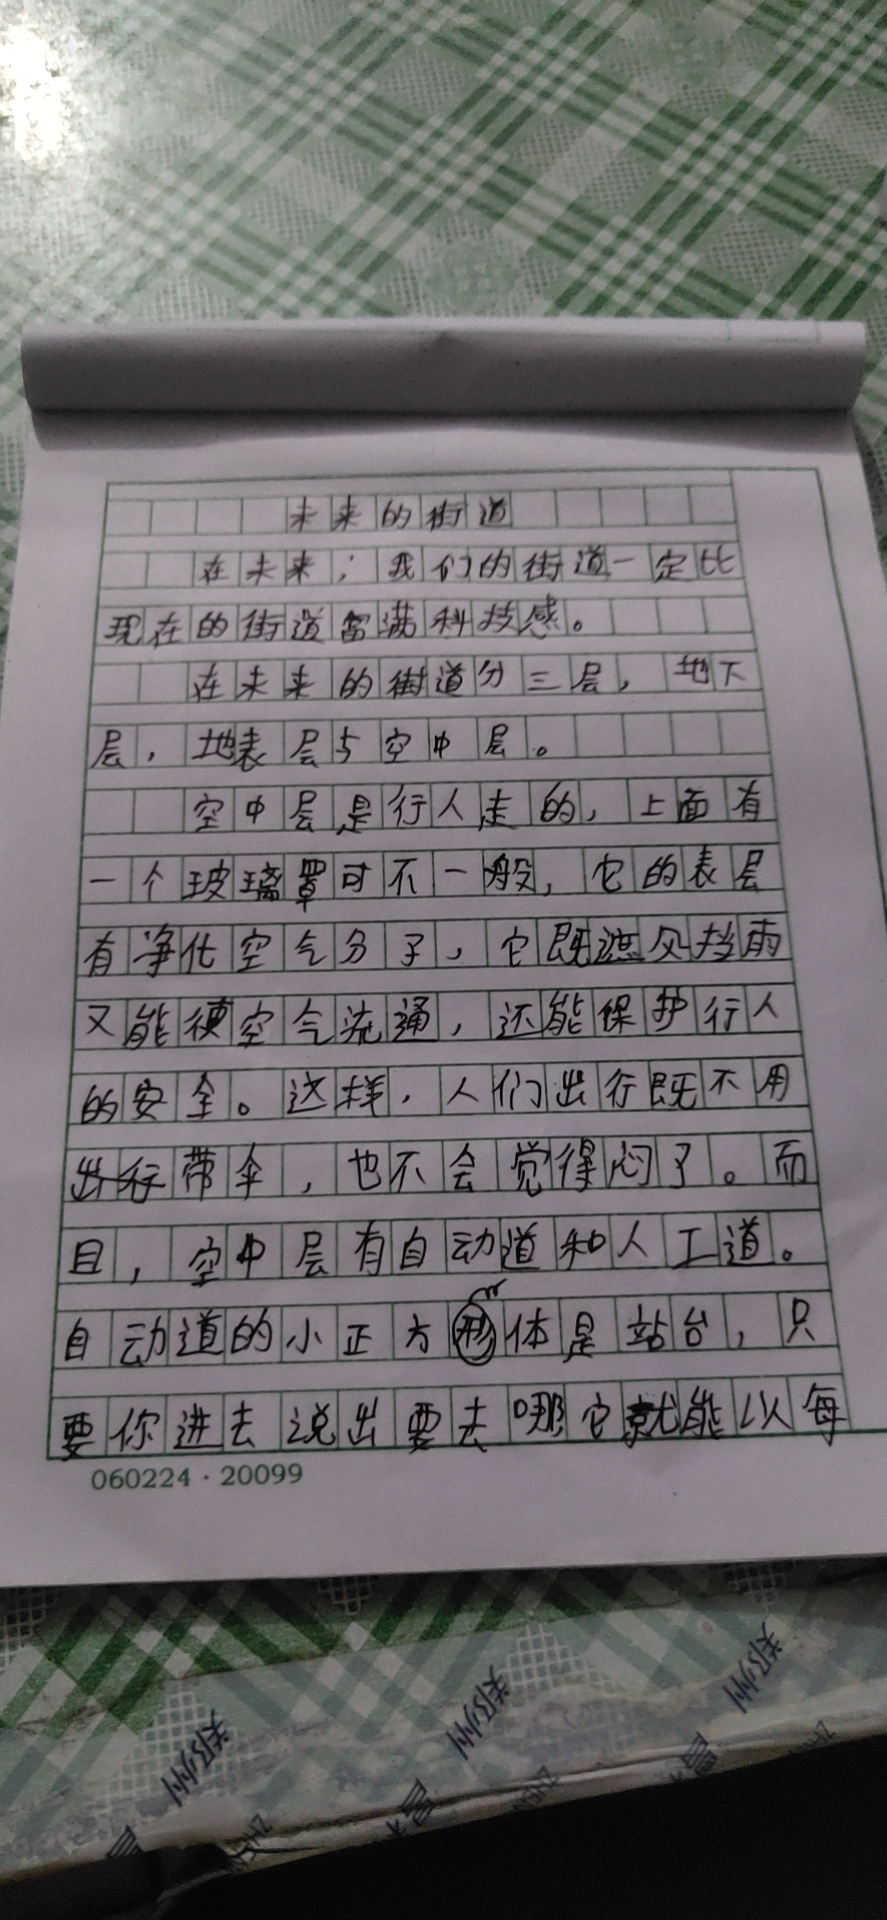 未来的街道
在未来，我们的街道一定比
现在的街道富满科技感。
在未来的街道分三层，地下
层，地表层与空中层。
空中层是行人走的，上面有
一个玻璃罩可不一般，它的表层
有净化空气分子，它既遮风挡雨
又能使空气流通，还能保护行人
的安全。这样，人们出行既不用
出行带伞，也不会觉得闷了。而
且，空中层有自动道和人工道。
自动道的小正方形体是站台，只
要你进去说出要去哪它就能以每
060224·20099
郑州
郑州
郑州